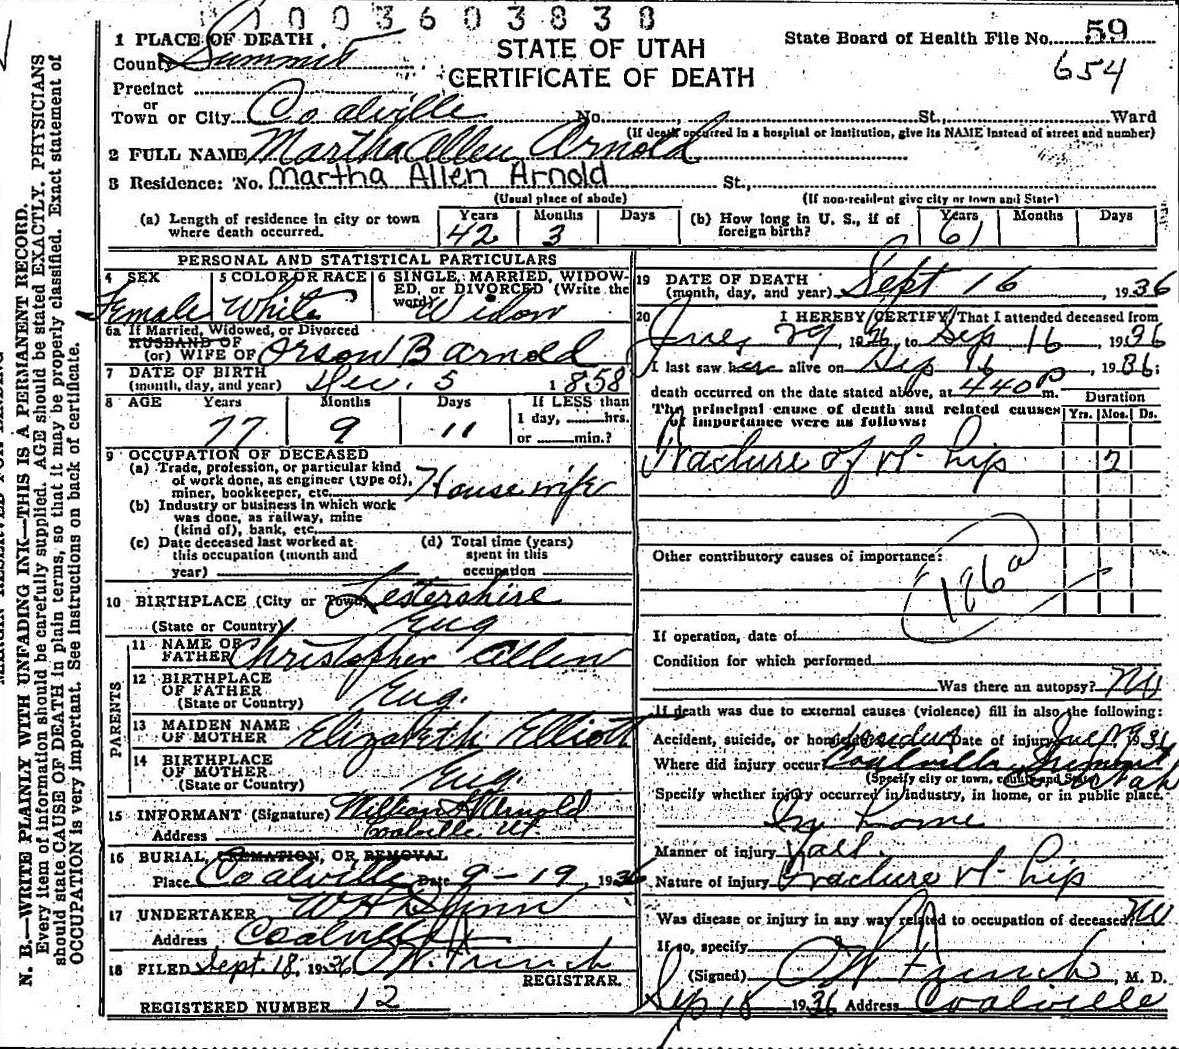 1003603838
1 PLACE OF DEATH
County Summit
STATE OF UTAH
CERTIFICATE OF DEATH
State Board of Health File No. 59
654
Precinct
or
Town or City Coalville No. St., Ward
(If death occurred in a hospital or institution, give its NAME instead of street and number)
2 FULL NAME Martha Allen Arnold
3 Residence: No. Martha Allen Arnold St.,
(Usual place of abode) (If non-resident give city or town and State)
(a) Length of residence in city or town where death occurred. Years 42 Months 3 Days
(b) How long in U. S., if of foreign birth? Years 61 Months Days
PERSONAL AND STATISTICAL PARTICULARS
4 SEX Female
5 COLOR OR RACE White
6 SINGLE, MARRIED, WIDOWED, or DIVORCED (Write the word) Widow
6a If Married, Widowed, or Divorced
HUSBAND OF
(or) WIFE OF Orson B Arnold
7 DATE OF BIRTH
(month, day, and year) Dec. 5 1858
8 AGE Years 77 Months 9 Days 11 If LESS than 1 day, hrs. or min.?
9 OCCUPATION OF DECEASED
(a) Trade, profession, or particular kind of work done, as engineer (type of), miner, bookkeeper, etc. Housewife
(b) Industry or business in which work was done, as railway, mine (kind of), bank, etc.
(c) Date deceased last worked at this occupation (month and year)
(d) Total time (years) spent in this occupation
10 BIRTHPLACE (City or Town) Lestershire
(State or Country) Eng
PARENTS
11 NAME OF FATHER Christopher Allen
12 BIRTHPLACE OF FATHER
(State or Country) Eng.
13 MAIDEN NAME OF MOTHER Elizabeth Elliott
14 BIRTHPLACE OF MOTHER
(State or Country) Eng.
15 INFORMANT (Signature) Arnold
Address Coalville Ut
16 BURIAL, CREMATION, OR REMOVAL
Place Coalville Date 9-19 1936
17 UNDERTAKER
Address Coalville
18 FILED Sept. 18, 1936
REGISTRAR
REGISTERED NUMBER 12
19 DATE OF DEATH
(month, day, and year) Sept 16, 1936
20 I HEREBY CERTIFY That I attended deceased from
June 29, 1936, to Sep 16 1936
I last saw her alive on Sep 16, 1936;
death occurred on the date stated above, at 440 P m.
The principal cause of death and related causes of importance were as follows:
Duration
Yrs. Mos. Ds.
Fracture of rt- hip
Other contributory causes of importance:
186a
If operation, date of
Condition for which performed
Was there an autopsy? No
If death was due to external causes (violence) fill in also the following:
Accident, suicide, or homicide? Accident Date of injury
Where did injury occur? Coalville Summit Utah
(Specify city or town, county and State)
Specify whether injury occurred in industry, in home, or in public place.
In home
Manner of injury Fall.
Nature of injury Fracture rt- hip
Was disease or injury in any way related to occupation of deceased? No
If so, specify
(Signed) M. D.
Sep 18, 1936 Address Coalville
N. B.—WRITE PLAINLY WITH UNFADING INK—THIS IS A PERMANENT RECORD.
Every item of information should be carefully supplied. AGE should be stated EXACTLY. PHYSICIANS
should state CAUSE OF DEATH in plain terms, so that it may be properly classified. Exact statement of
OCCUPATION is very important. See instructions on back of certificate.